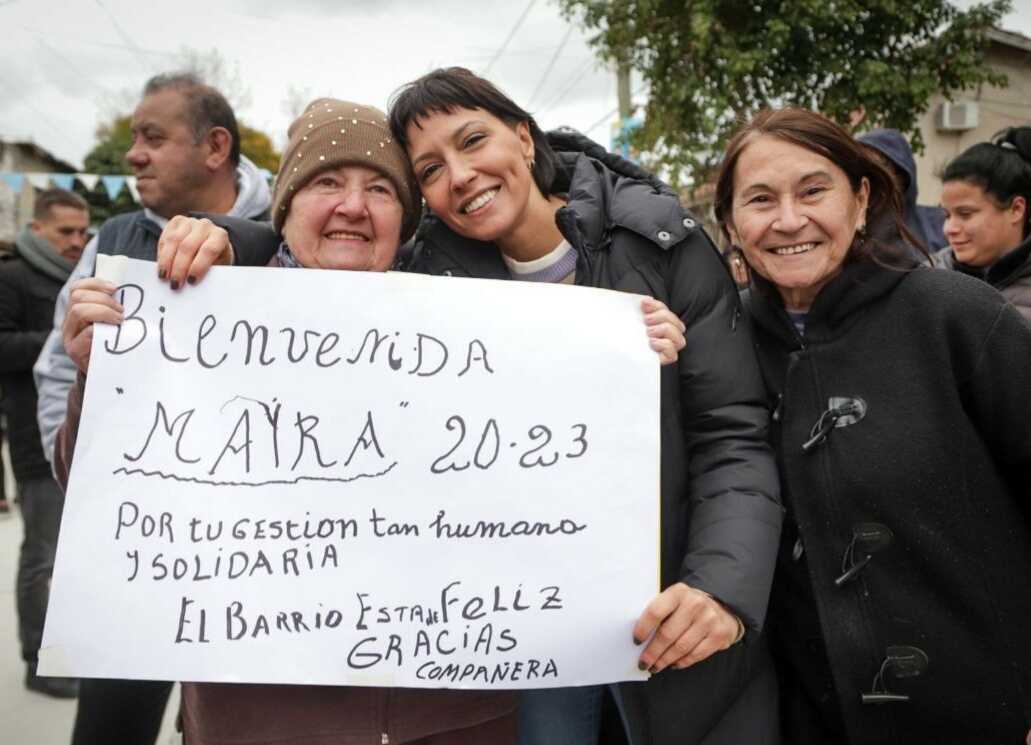 BienveniDA
"MAYRA" 20.23
POR tu GESTION tan humana
Y SOLIDARIA
EL BARRIO ESTA de FELIZ
GRACIAS
COMPAÑERA